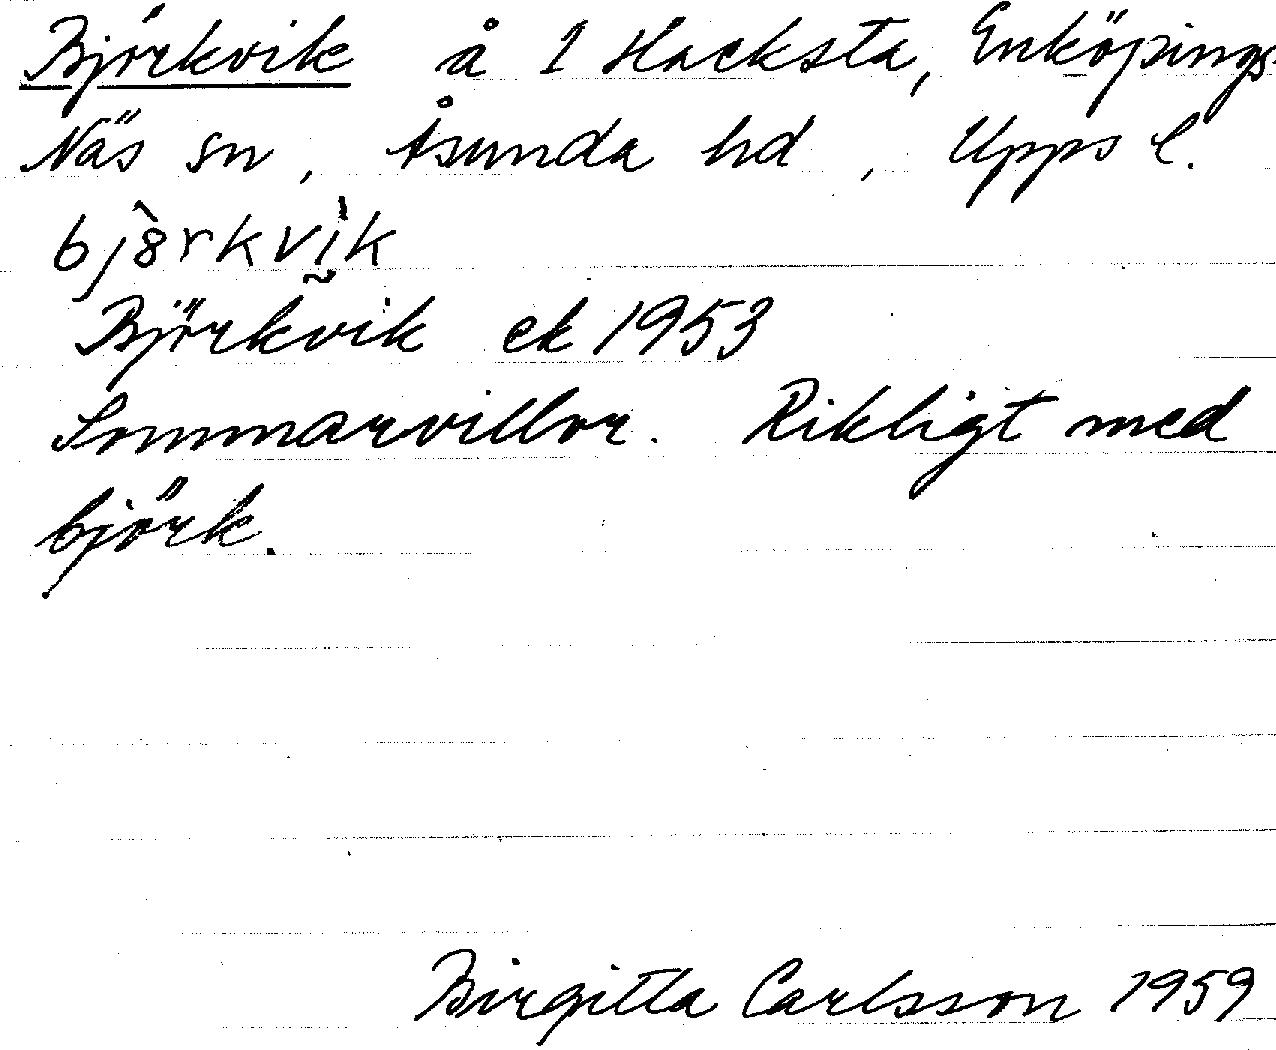 Björkvik å 1 Hacksta, Enköpings-
Näs sn, Åsunda hd, Upps l.
bjö̀rkvḭ̀k
Björkvik ek 1953
Sommarvillor. Rikligt med
björk.
Birgitta Carlsson 1959